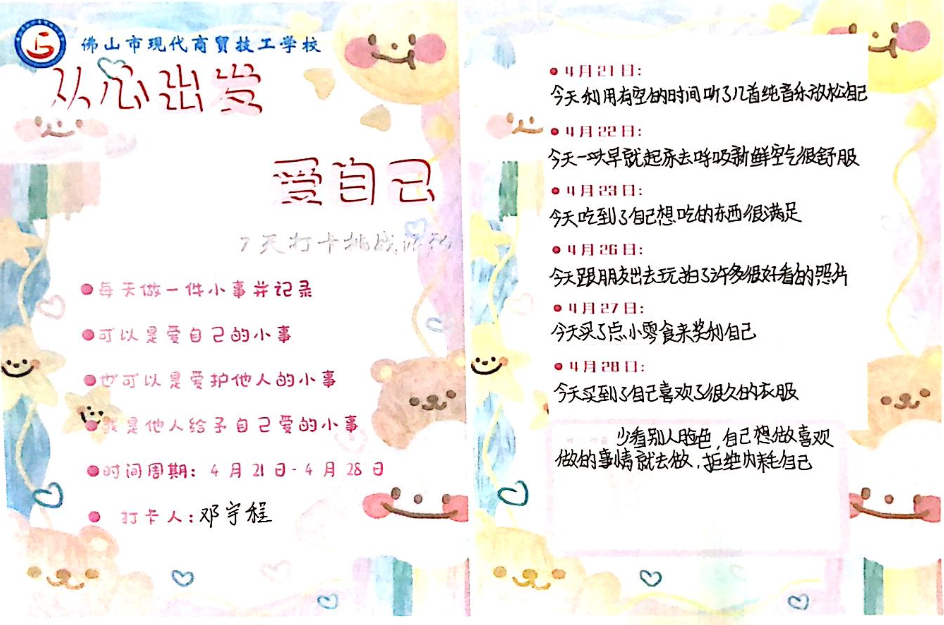 佛山市现代商贸技工学校
从心出发
爱自己
7天打卡挑战
每天做一件小事并记录
可以是爱自己的小事
也可以是爱护他人的小事
或是他人给予自己爱的小事
时间周期：4月21日-4月28日
打卡人：邓宇程
4月21日：
今天利用有空的时间听了几首纯音乐放松自己
4月22日：
今天一大早就起床去呼吸新鲜空气很舒服
4月23日：
今天吃到了自己想吃的东西很满足
4月26日：
今天跟朋友出去玩拍了许多很好看的照片
4月27日：
今天买了点小零食来奖励自己
4月28日：
今天买到了自己喜欢了很久的衣服
少看别人脸色，自己想做喜欢
做的事情就去做，拒绝内耗自己